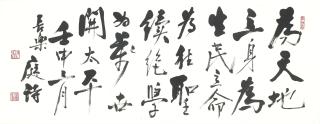 為天地
立身為
生民立命
為往聖
繼絕學
為萬世
開太平
壬申六月